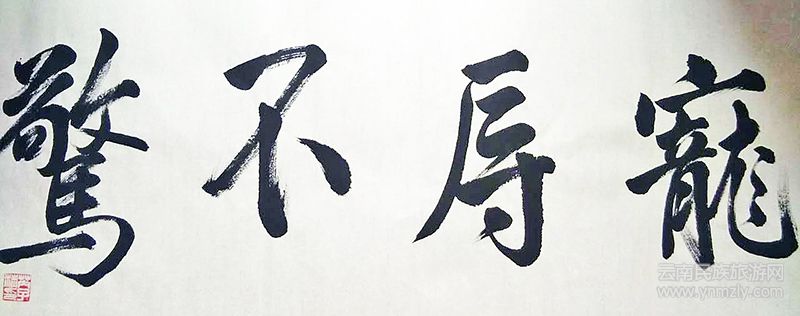 寵辱不驚
云南民族旅游网
www.ynmzly.com